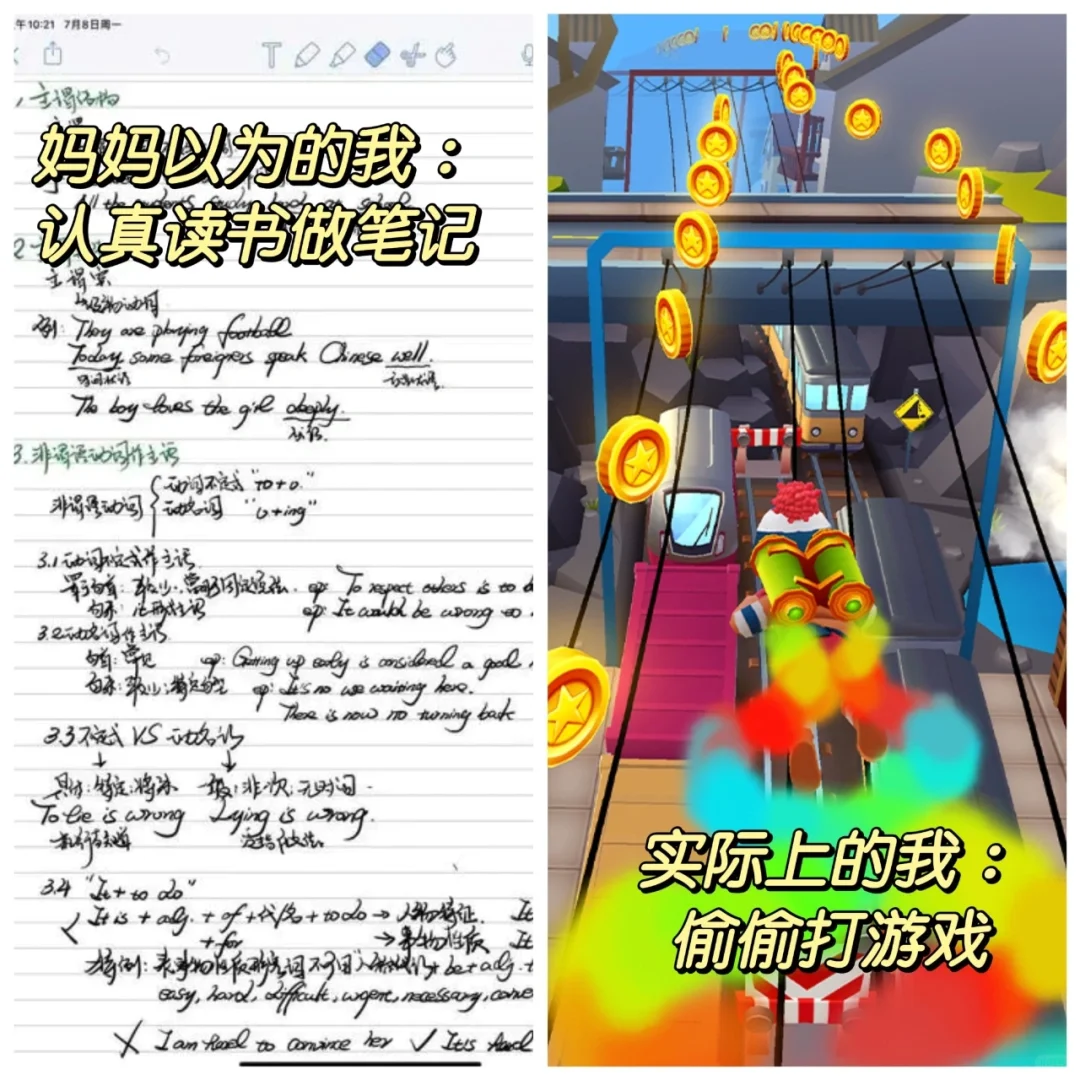 午10:21 7月8日周一
1、主谓结构
妈妈以为的我：
认真读书做笔记
主谓宾
↳及物动词
例: They are playing football
Today some foreigners speak Chinese well.
时间状语
The boy loves the girl deeply.
状语.
3.非谓语动词作主语
非谓语动词 { 动词不定式 "to+o."
动名词 "v+ing"
3.1 动词不定式作主语
eg: To respect others is to
eg: It would be wrong to
3.2 动名词作主语
句首: 常见 eg: Getting up early is considered a good
eg: It's no use waiting here.
There is now no turning back
3.3 不定式 VS 动名词
↓ ↓
具体; 特定; 将来 一般; 非一次; 无时间.
To lie is wrong Lying is wrong.
3.4 "It + to do"
It is + adj. + of + 代/名 + to do → 人物特征. It
+ for → 事物性质 It
be + adj. +
easy, hard, difficult, urgent, necessary, conve
✗ I am hard to convince her ✓ It's hard
实际上的我：
偷偷打游戏